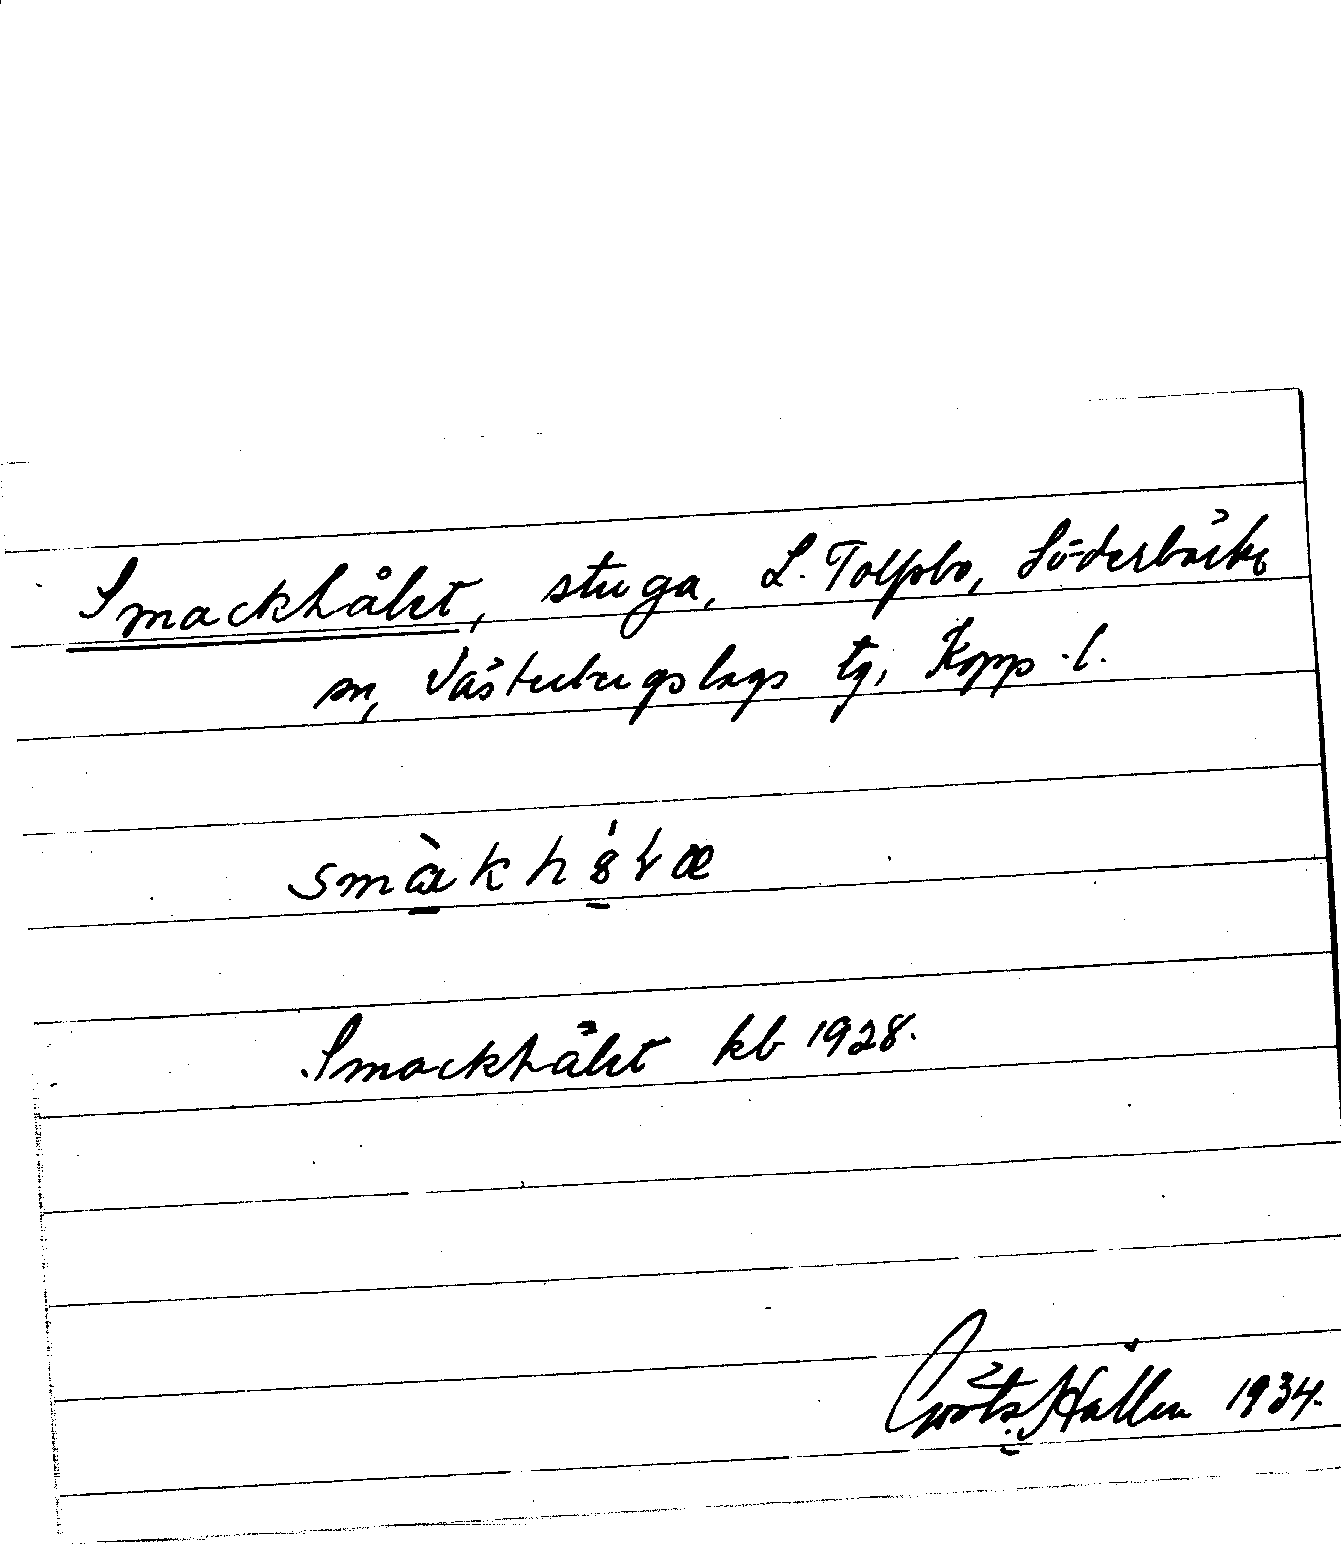 Smackhålet, stuga, L. Tolfsbo, Söderbärke
sn, Västerbergslags tg, Kopp.l.
smàkhálæ
Smackhålet kb 1928.
Göta Hallén 1934.